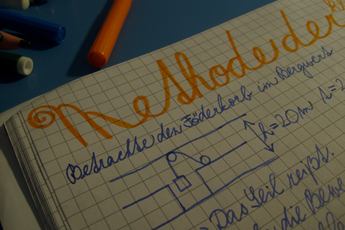 Methode der
Betrachte den Föderkorb im Bergwerk
h=20m
Das Seil reißt.
die Bewe